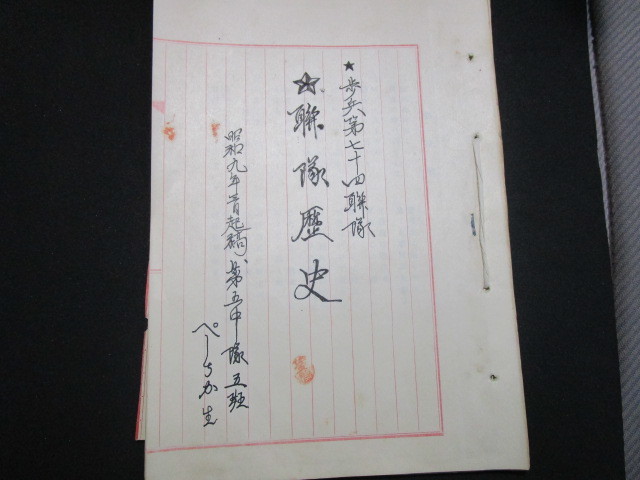 ★歩兵第七十四聯隊
★聯隊歴史
昭和九年首起稿、第五中隊五班
ペーちか生